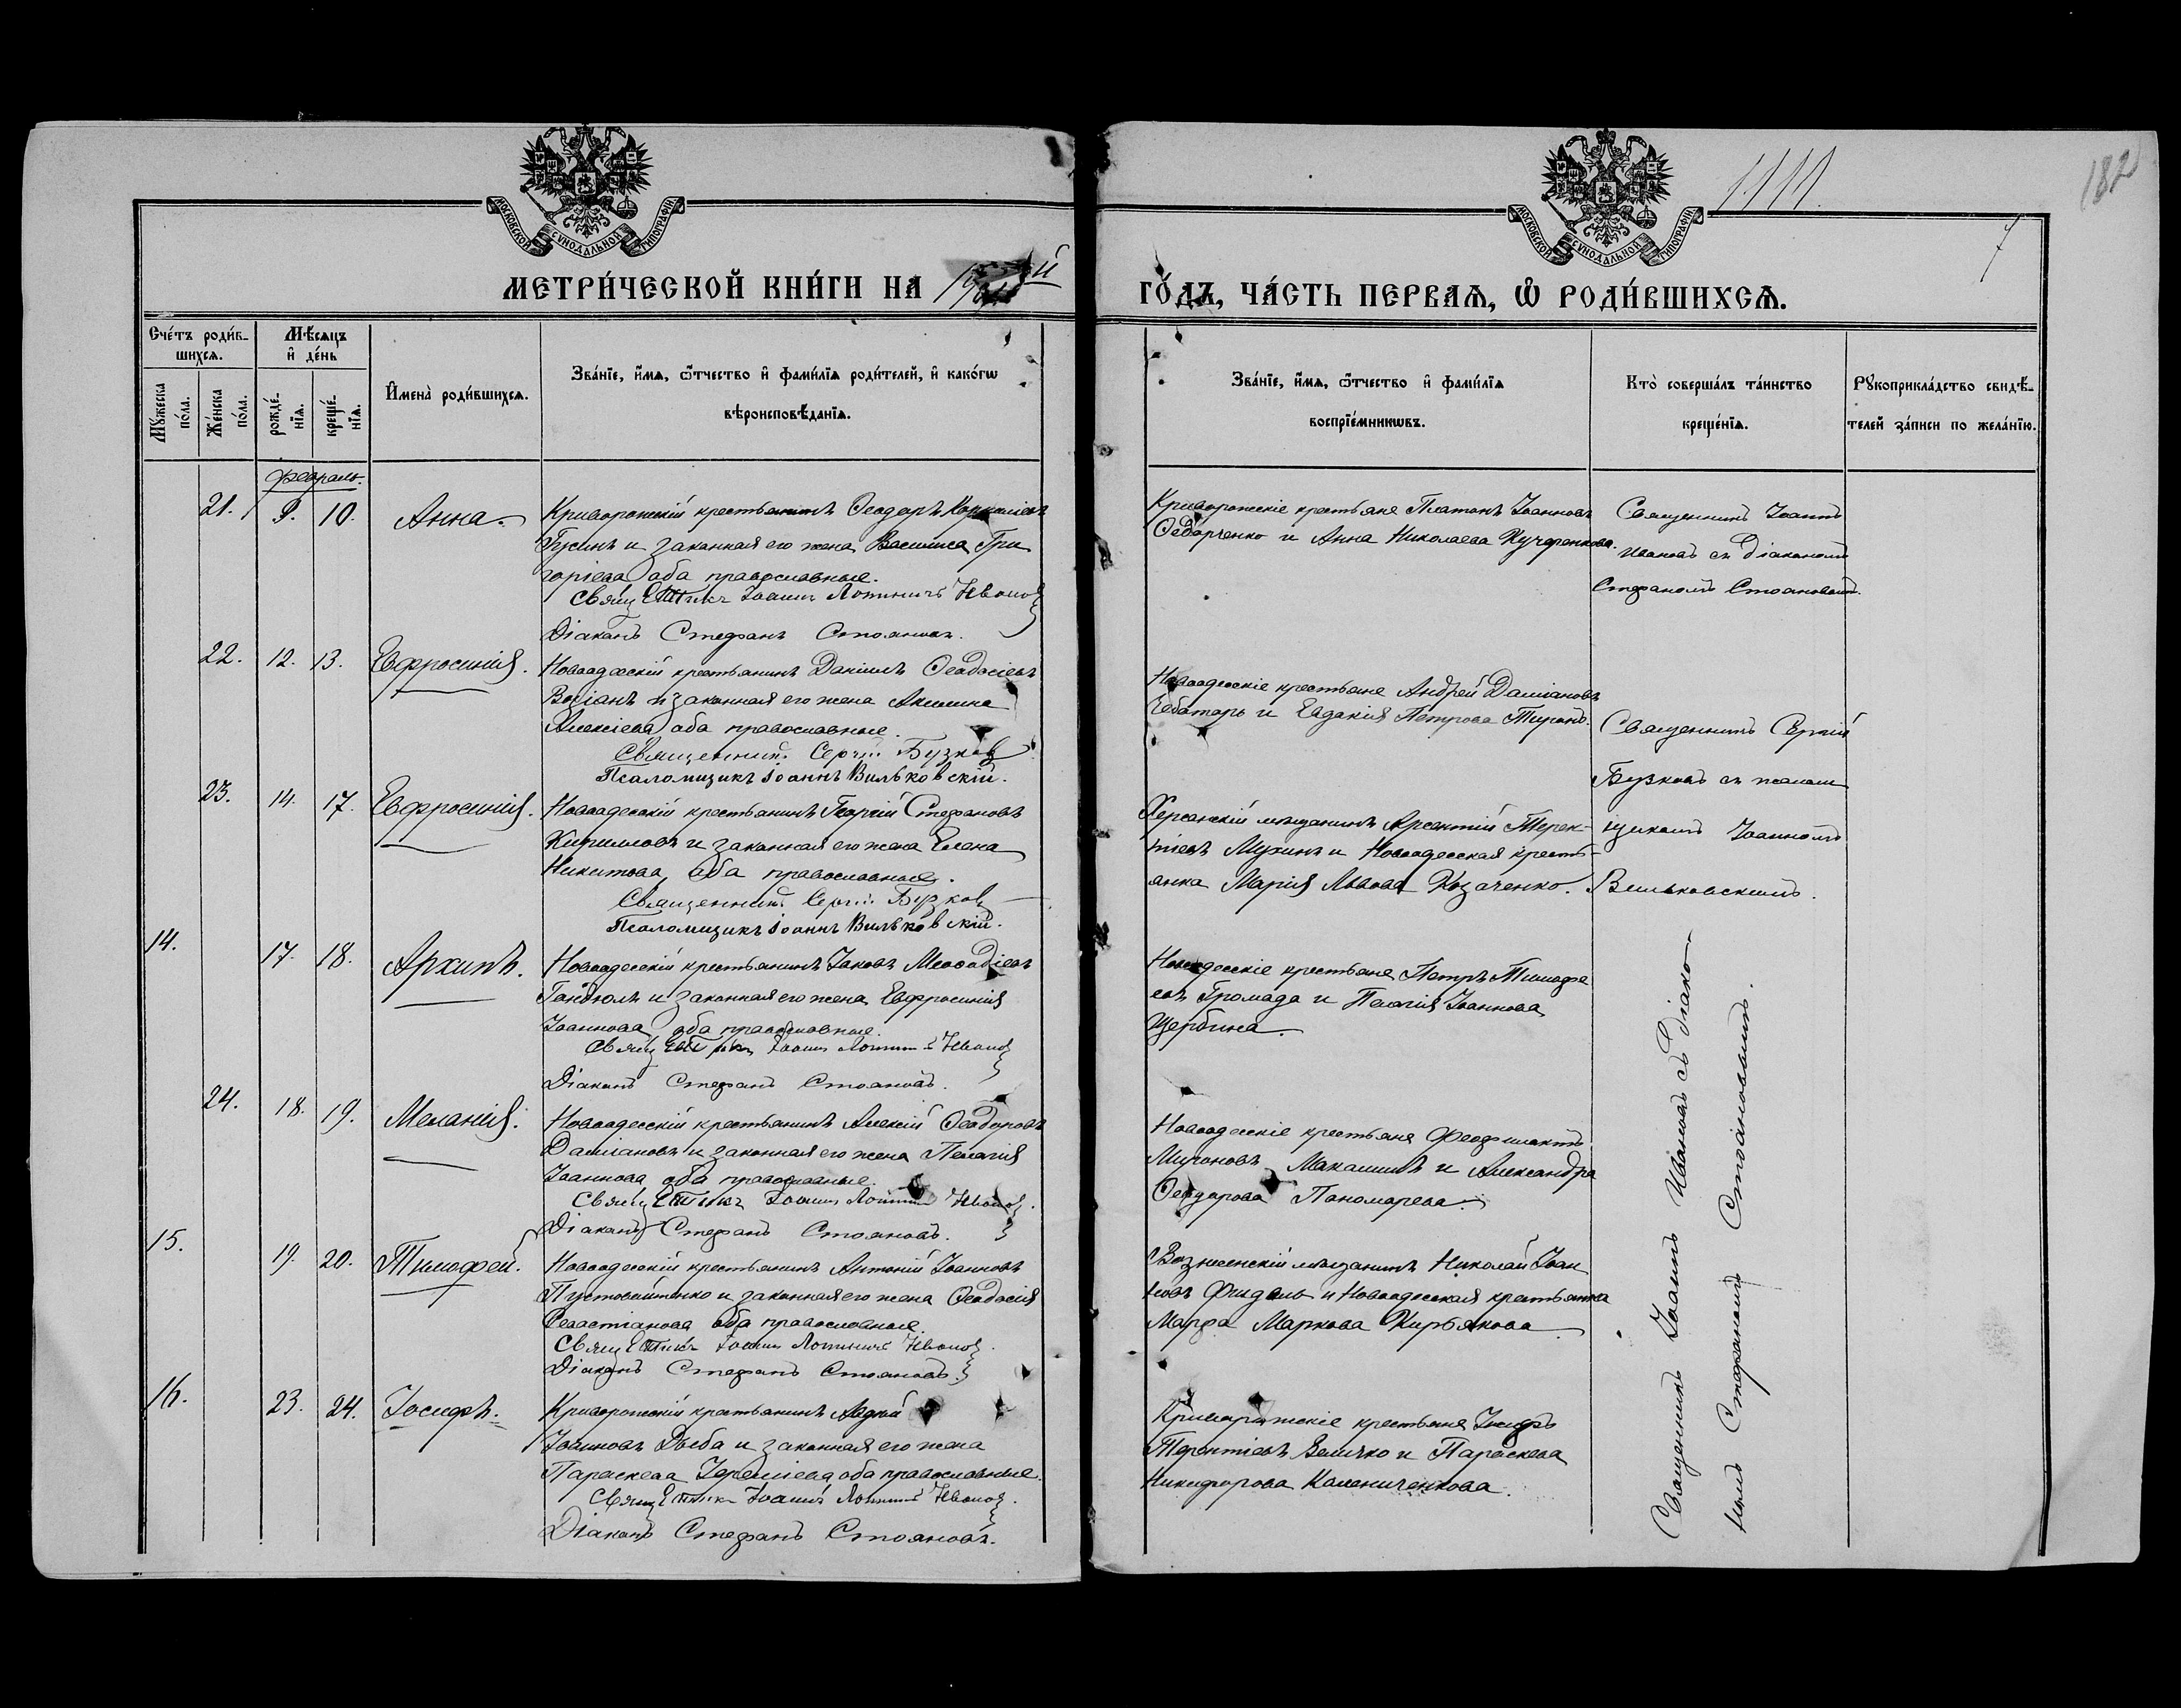 МОСКОВСКОЙ СѴНОДАЛЬНОЙ ТИПОГРАФІИ
МЕТРИ́ЧЕСКОЙ КНИ́ГИ НА
Сче́тъ роди́в-
шихсѧ.
Мѣ́сѧцъ
и҆ де́нь
Мꙋ́жеска
по́ла.
Же́нска
по́ла.
рожде́-
нїѧ.
креще́-
нїѧ.
И҆мена̀ роди́вшихсѧ.
Зва́нїе, и҆́мѧ, ѻ҆́тчество и҆ фами́лїѧ роди́телей, и҆ како́гѡ
вѣроисповѣ́данїѧ.
Февраль.
21. 9. 10. Анна.
Криворожскій крестьянинъ Ѳеодоръ
Гусинъ и законная его жена Василиса Гри
горіева оба православные.
Іоаннъ Логиновъ Ивановъ
Діаконъ Стефанъ Стояновъ.
22. 12. 13. Евфросинія.
Новоодесскій крестьянинъ Даніилъ Ѳеодосіевъ
и законная его жена Акилина
Алексіева оба православные.
Священникъ Сергій Бузковъ
Псаломщикъ Іоаннъ Вильковскій.
23. 14. 17. Евфросинія.
Новоодесскій крестьянинъ Георгій Стефановъ
Кирилловъ и законная его жена Елена
Никитова, оба православные.
Священникъ Сергій Бузковъ
Псаломщикъ Іоаннъ Вильковскій.
14. 17. 18. Архипъ.
Новоодесскій крестьянинъ Іаковъ Меѳодіевъ
и законная его жена Евфросинія
Іоаннова оба православные.
Іоаннъ Ивановъ
Діаконъ Стефанъ Стояновъ.
24. 18. 19. Меланія.
Новоодесскій крестьянинъ Алексій Ѳеодоровъ
Даміановъ и законная его жена Пелагія
Іоаннова оба православные.
Іоаннъ Ивановъ.
Діаконъ Стефанъ Стояновъ.
15. 19. 20. Тимофей.
Новоодесскій крестьянинъ Антоній Іоанновъ
Пустовойтенко и законная его жена Ѳеодосія
Севастіанова оба православные.
Іоаннъ Ивановъ.
Діаконъ Стефанъ Стояновъ.
16. 23. 24. Іосифъ.
Криворожскій крестьянинъ
Іоанновъ Дзюба и законная его жена
Параскева Іереміева оба православные.
Іоаннъ Ивановъ.
Діаконъ Стефанъ Стояновъ.
1111.
182
7
МОСКОВСКОЙ СѴНОДАЛЬНОЙ ТИПОГРАФІИ
ГО́ДЪ, ЧА́СТЬ ПЕРВАѦ, Ѽ РОДИ́ВШИХСѦ.
Зва́нїе, и҆́мѧ, ѻ҆́тчество и҆ фами́лїѧ
воспрїе́мникѡвъ.
Кто̀ соверша́лъ та́инство
креще́нїѧ.
Рꙋкоприкла́дство свидѣ́-
телей за́писи по жела́нїю.
Криворожскіе крестьяне Платонъ Іоанновъ
Ѳедорченко и Анна Николаева Кучеренкова.
Священникъ Іоаннъ
Ивановъ съ діакономъ
Стефаномъ Стояновымъ.
Новоодесскіе крестьяне Андрей Даміановъ
Чеботарь и Евдокія Петрова
Священникъ Сергій
Бузковъ съ псалом
щикомъ Іоанномъ
Вильковскимъ.
Херсонскій мѣщанинъ Арсентій Терен-
тіевъ Мухинъ и Новоодесская кресть-
янка Марія Львова Козаченко.
Новоодесскіе крестьяне Петръ Тимофе
евъ Громада и Пелагія Іоаннова
Щербина.
Новоодесскіе крестьяне Феофилактъ
Мироновъ и Александра
Ѳеодорова Пономарева.
Вознесенскій мѣщанинъ Николай Іоан
новъ и Новоодесская крестьянка
Марфа Маркова Кирьякова.
Криворожскіе крестьяне Іосифъ
Терентіевъ Величко и Параскева
Никифорова Калениченкова.
Священникъ Іоаннъ Ивановъ съ діако-
номъ Стефаномъ Стояновымъ.